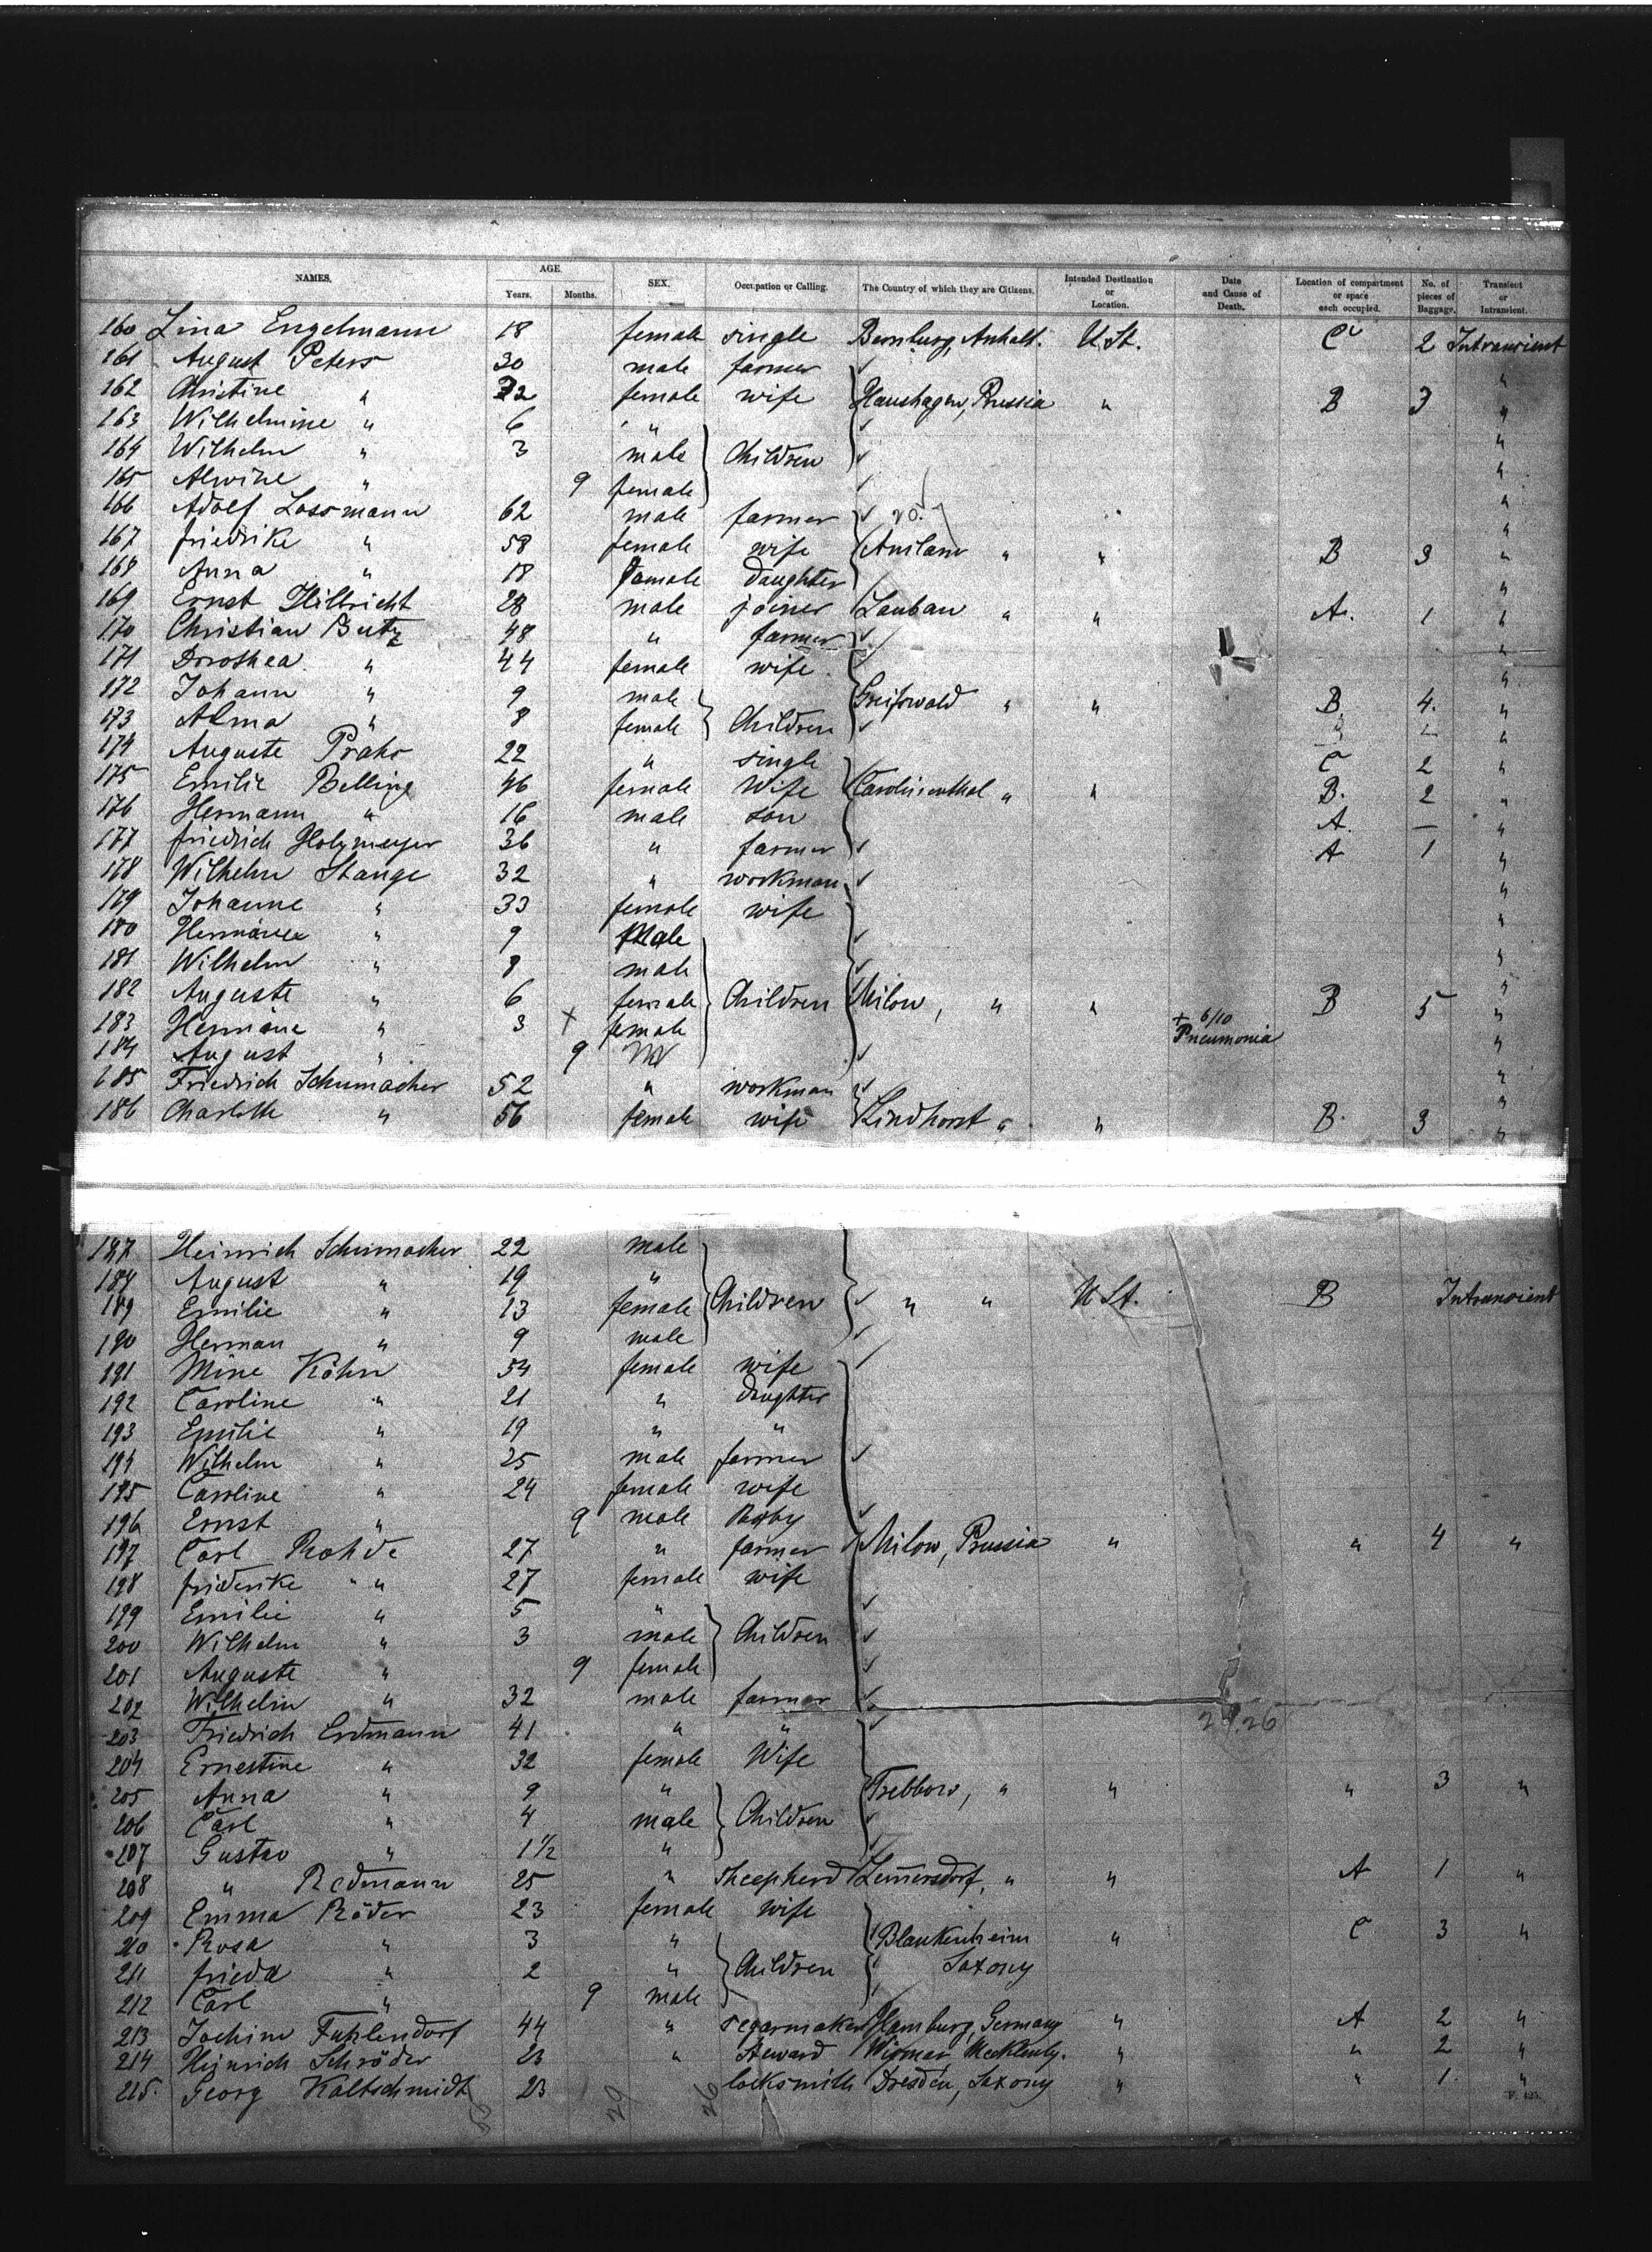 NAMES. AGE. Years. Months. SEX. Occupation or Calling. The Country of which they are Citizens. Intended Destination or Location. Date and Cause of Death. Location of compartment or space each occupied. No. of pieces of Baggage. Transient or Intransient.
160 Lina Engelmann 18 female single Bernburg, Anhalt. U. St. C 2 Intransient
161 August Peters 30 male farmer "
162 Christine " 32 female wife Hanshagen, Prussia " B 3 "
163 Wilhelmine " 6 " "
164 Wilhelm " 3 male Children "
165 Alwine " 9 female "
166 Adolf Lossmann 62 male farmer "
167 friedrike " 58 female wife " " B 3 "
168 Anna " 18 female daughter "
169 Ernst Hillricht 28 male joiner Lauban " " A. 1 "
170 Christian Butz 48 " farmer "
171 Dorothea " 44 female wife "
172 Johann " 9 male Greifswald " " B 4. "
173 Alma " 8 female Children "
174 Auguste Prahs 22 " single C 2 "
175 Emilie Belling 46 female Wife Carolinenthal " " B. 2 "
176 Hermann " 16 male son A. — "
177 friedrich Holzmeyer 36 " farmer A 1 "
178 Wilhelm Stange 32 " workman "
179 Johanne " 33 female wife "
180 " 9 Male "
181 Wilhelm " 8 male "
182 Auguste " 6 female Children Milow, " " B 5 "
183 Hermine " 3 + female + 6/10 Pneumonia "
184 August " 9 M "
185 Friedrich Schumacher 52 " workman "
186 Charlotte " 56 female wife Lindhorst " " B. 3 "
187 Heinrich Schumacher 22 male
188 August " 19 "
189 Emilie " 13 female Children " " U St. B Intransient
190 Herman " 9 male
191 Mine Köhn 54 female wife
192 Caroline " 21 " daughter
193 Emilie " 19 " "
194 Wilhelm " 25 male farmer
195 Caroline " 24 female wife
196 Ernst " 9 male Baby
197 Carl Rohde 27 " farmer Milow, Prussia " " 4 "
198 friderike " 27 female wife
199 Emilie " 5 "
200 Wilhelm " 3 male Children
201 Auguste " 9 female
202 Wilhelm " 32 male farmer
203 Friedrich Erdmann 41 " "
204 Ernestine " 32 female Wife
205 Anna " 9 " Trebbow, " " " 3 "
206 Carl " 4 male Children
207 Gustav " 1 1/2 "
208 " Redmann 25 " Sheepherd Lemersdorf, " " A 1 "
209 Emma Röder 23 female wife
210 Rosa " 3 " Blankenheim " C 3 "
211 frieda " 2 " Children Saxony
212 Carl " 9 male
213 Jochim Fuhlendorf 44 " segarmaker Hamburg, Germany " A 2 "
214 Heinrich Schröder 23 " Steward Wismar Mecklenbg. " " 2 "
215. Georg Kaltschmidt 23 locksmith Dresden, Saxony " " 1. "